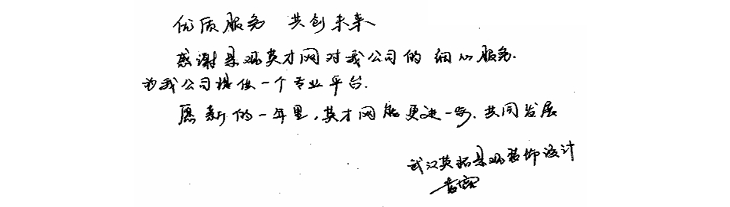 优质服务 共创未来
感谢景观英才网对我公司的细心服务.
为我公司提供一个专业平台.
愿新的一年里,英才网能更进一步.共同发展
武汉英拓景观装饰设计